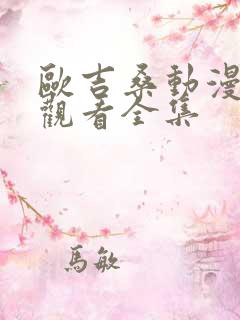 歐吉桑動漫
觀看全集
馬敏